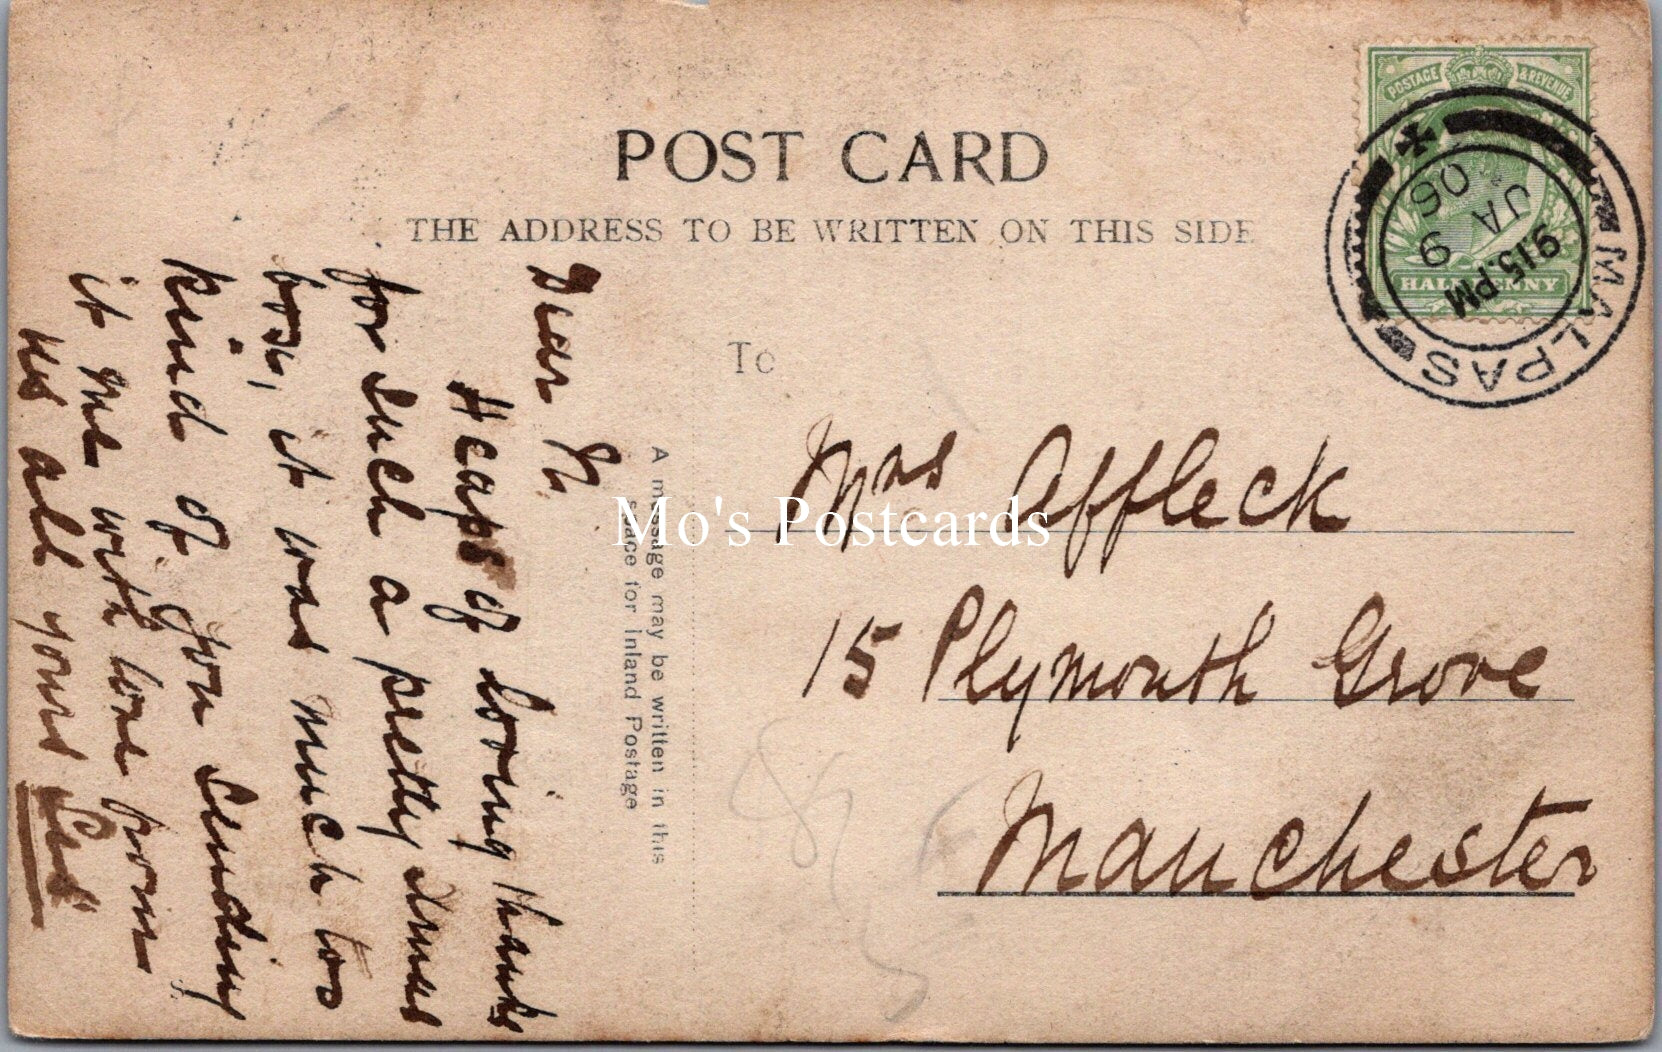 POST CARD
THE ADDRESS TO BE WRITTEN ON THIS SIDE
POSTAGE & REVENUE
HALFPENNY
MALPAS
9.15.PM
9
JA
06
To
Mrs Affleck
15 Plymouth Grove
Manchester
A message may be written in this
space for inland Postage
Dear
Heaps of loving thanks
for such a pretty Xmas
box, it was much too
kind of you sending
it me with love from
us all yours
Mo's Postcards